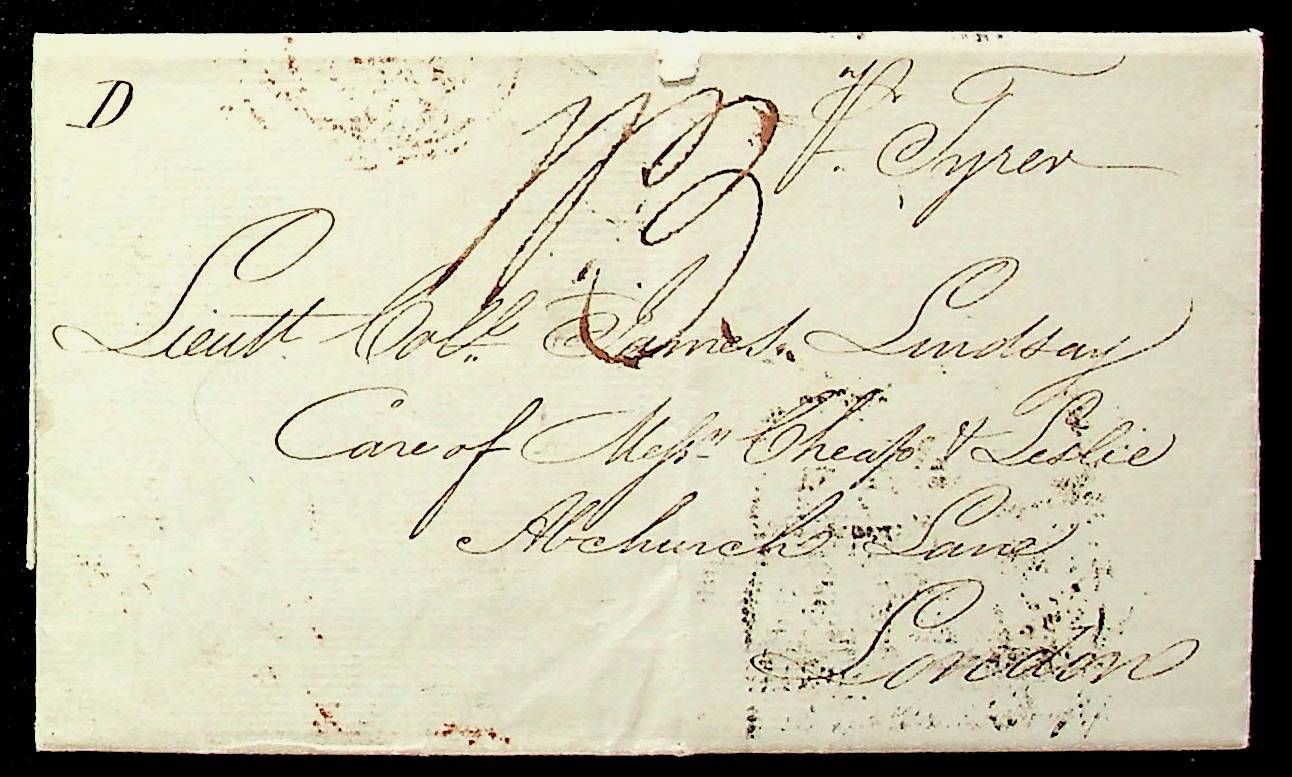 D
pr. Tyrer
1/3
Lieutt. Coll. James Lindsay
Care of Messrs Cheap & Leslie
Abchurch Lane
London